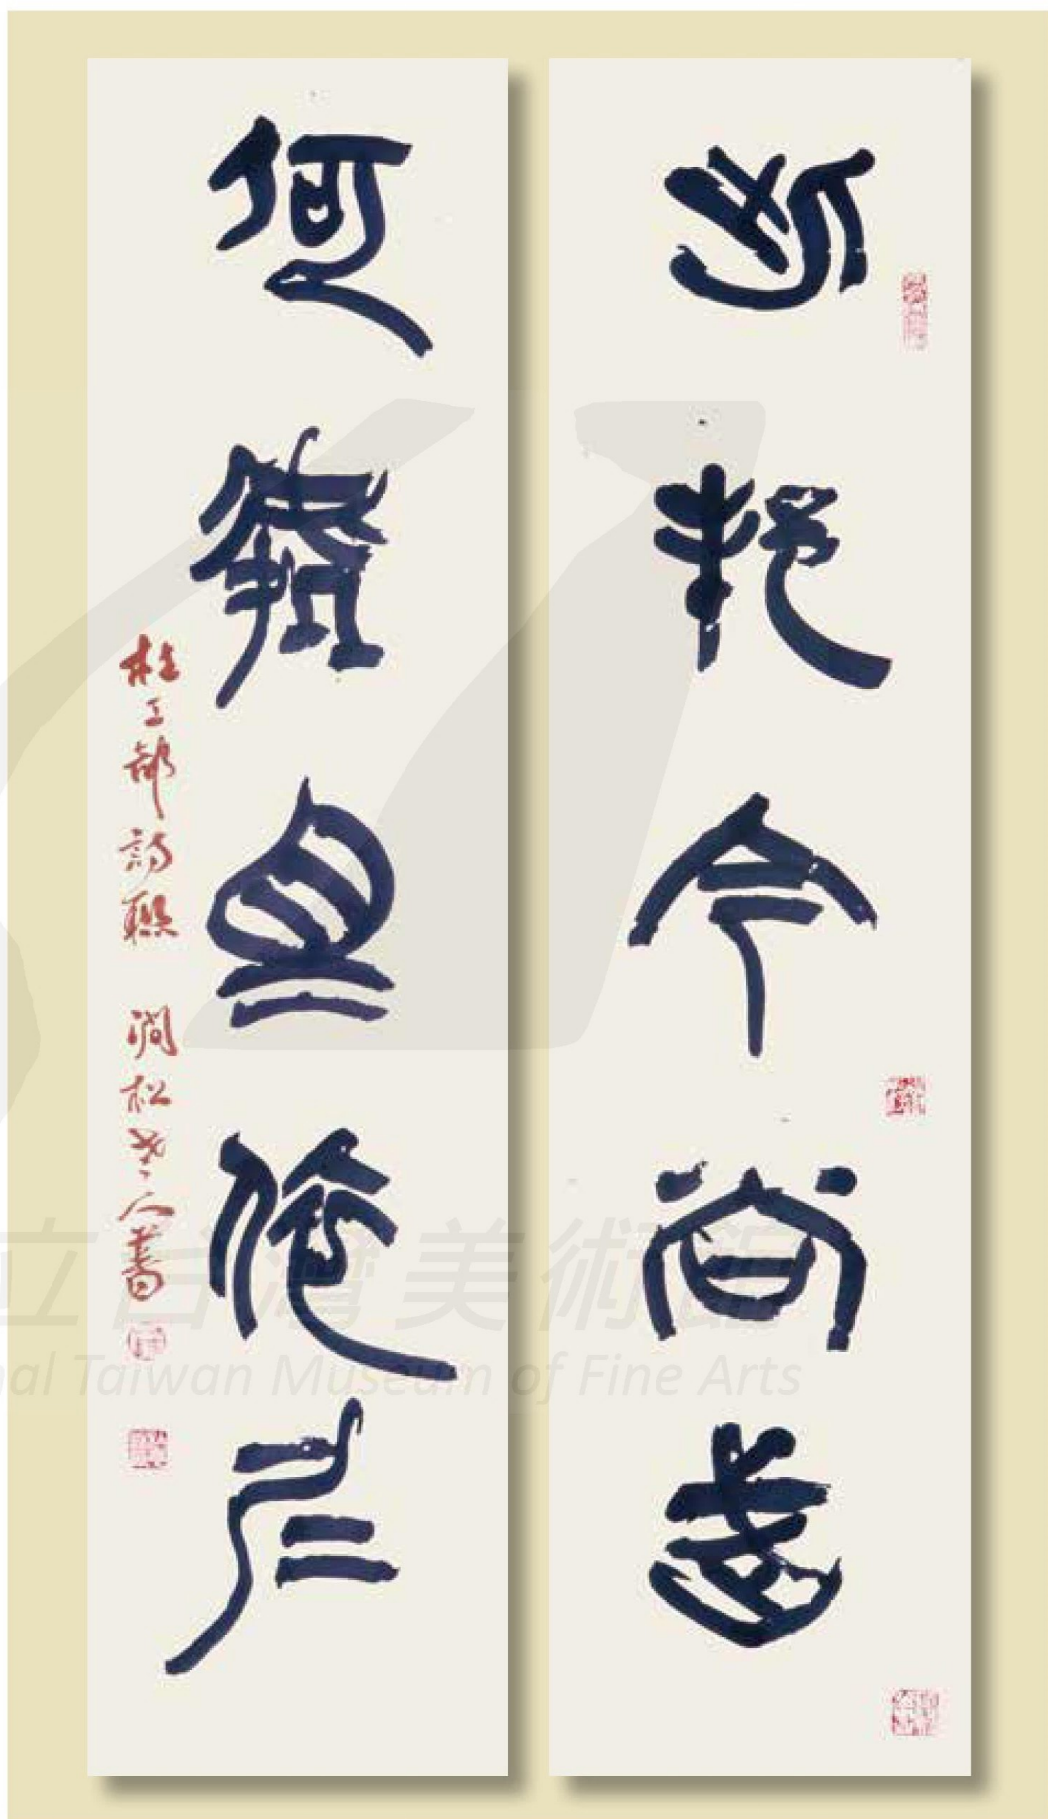 此邦今尚武
何處且依仁
杜工部詩聯 澗松老人書
立台灣美術館
nal Taiwan Museum of Fine Arts